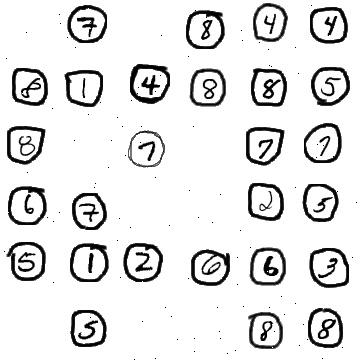 7 8 4 4
8 1 4 8 8 5
8 7 7 7
6 7 2 5
5 1 2 6 6 3
5 8 8